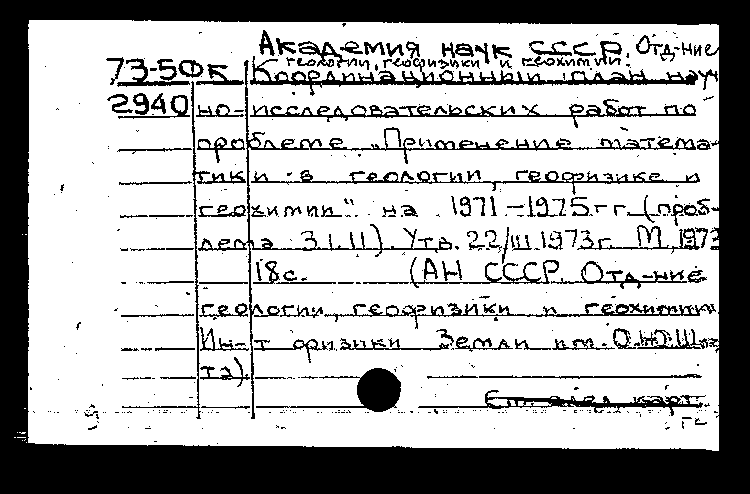 Академия наук СССР. Отд-ние
геологии, геофизики и геохимии.
73-50К Координационный план науч
2940 но-исследовательских работ по
проблеме „Применение матема-
тики в геологии, геофизике и
геохимии" на 1971-1975гг. (проб-
лема 3.1.11). Утв. 22/III 1973г. М, 1973
18с. (АН СССР. Отд-ние
геологии, геофизики и геохимии.
Ин-т физики Земли им. О.Ю.Шми
та).
См. след. карт.